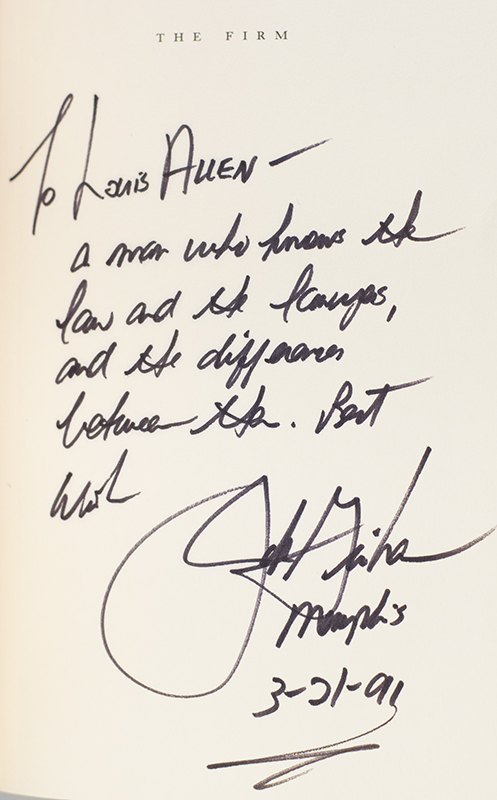 THE FIRM
To Louis Allen —
a man who knows the
law and the lawyers,
and the differences
between them. Best
Wish
John Grisham
Memphis
3-21-91